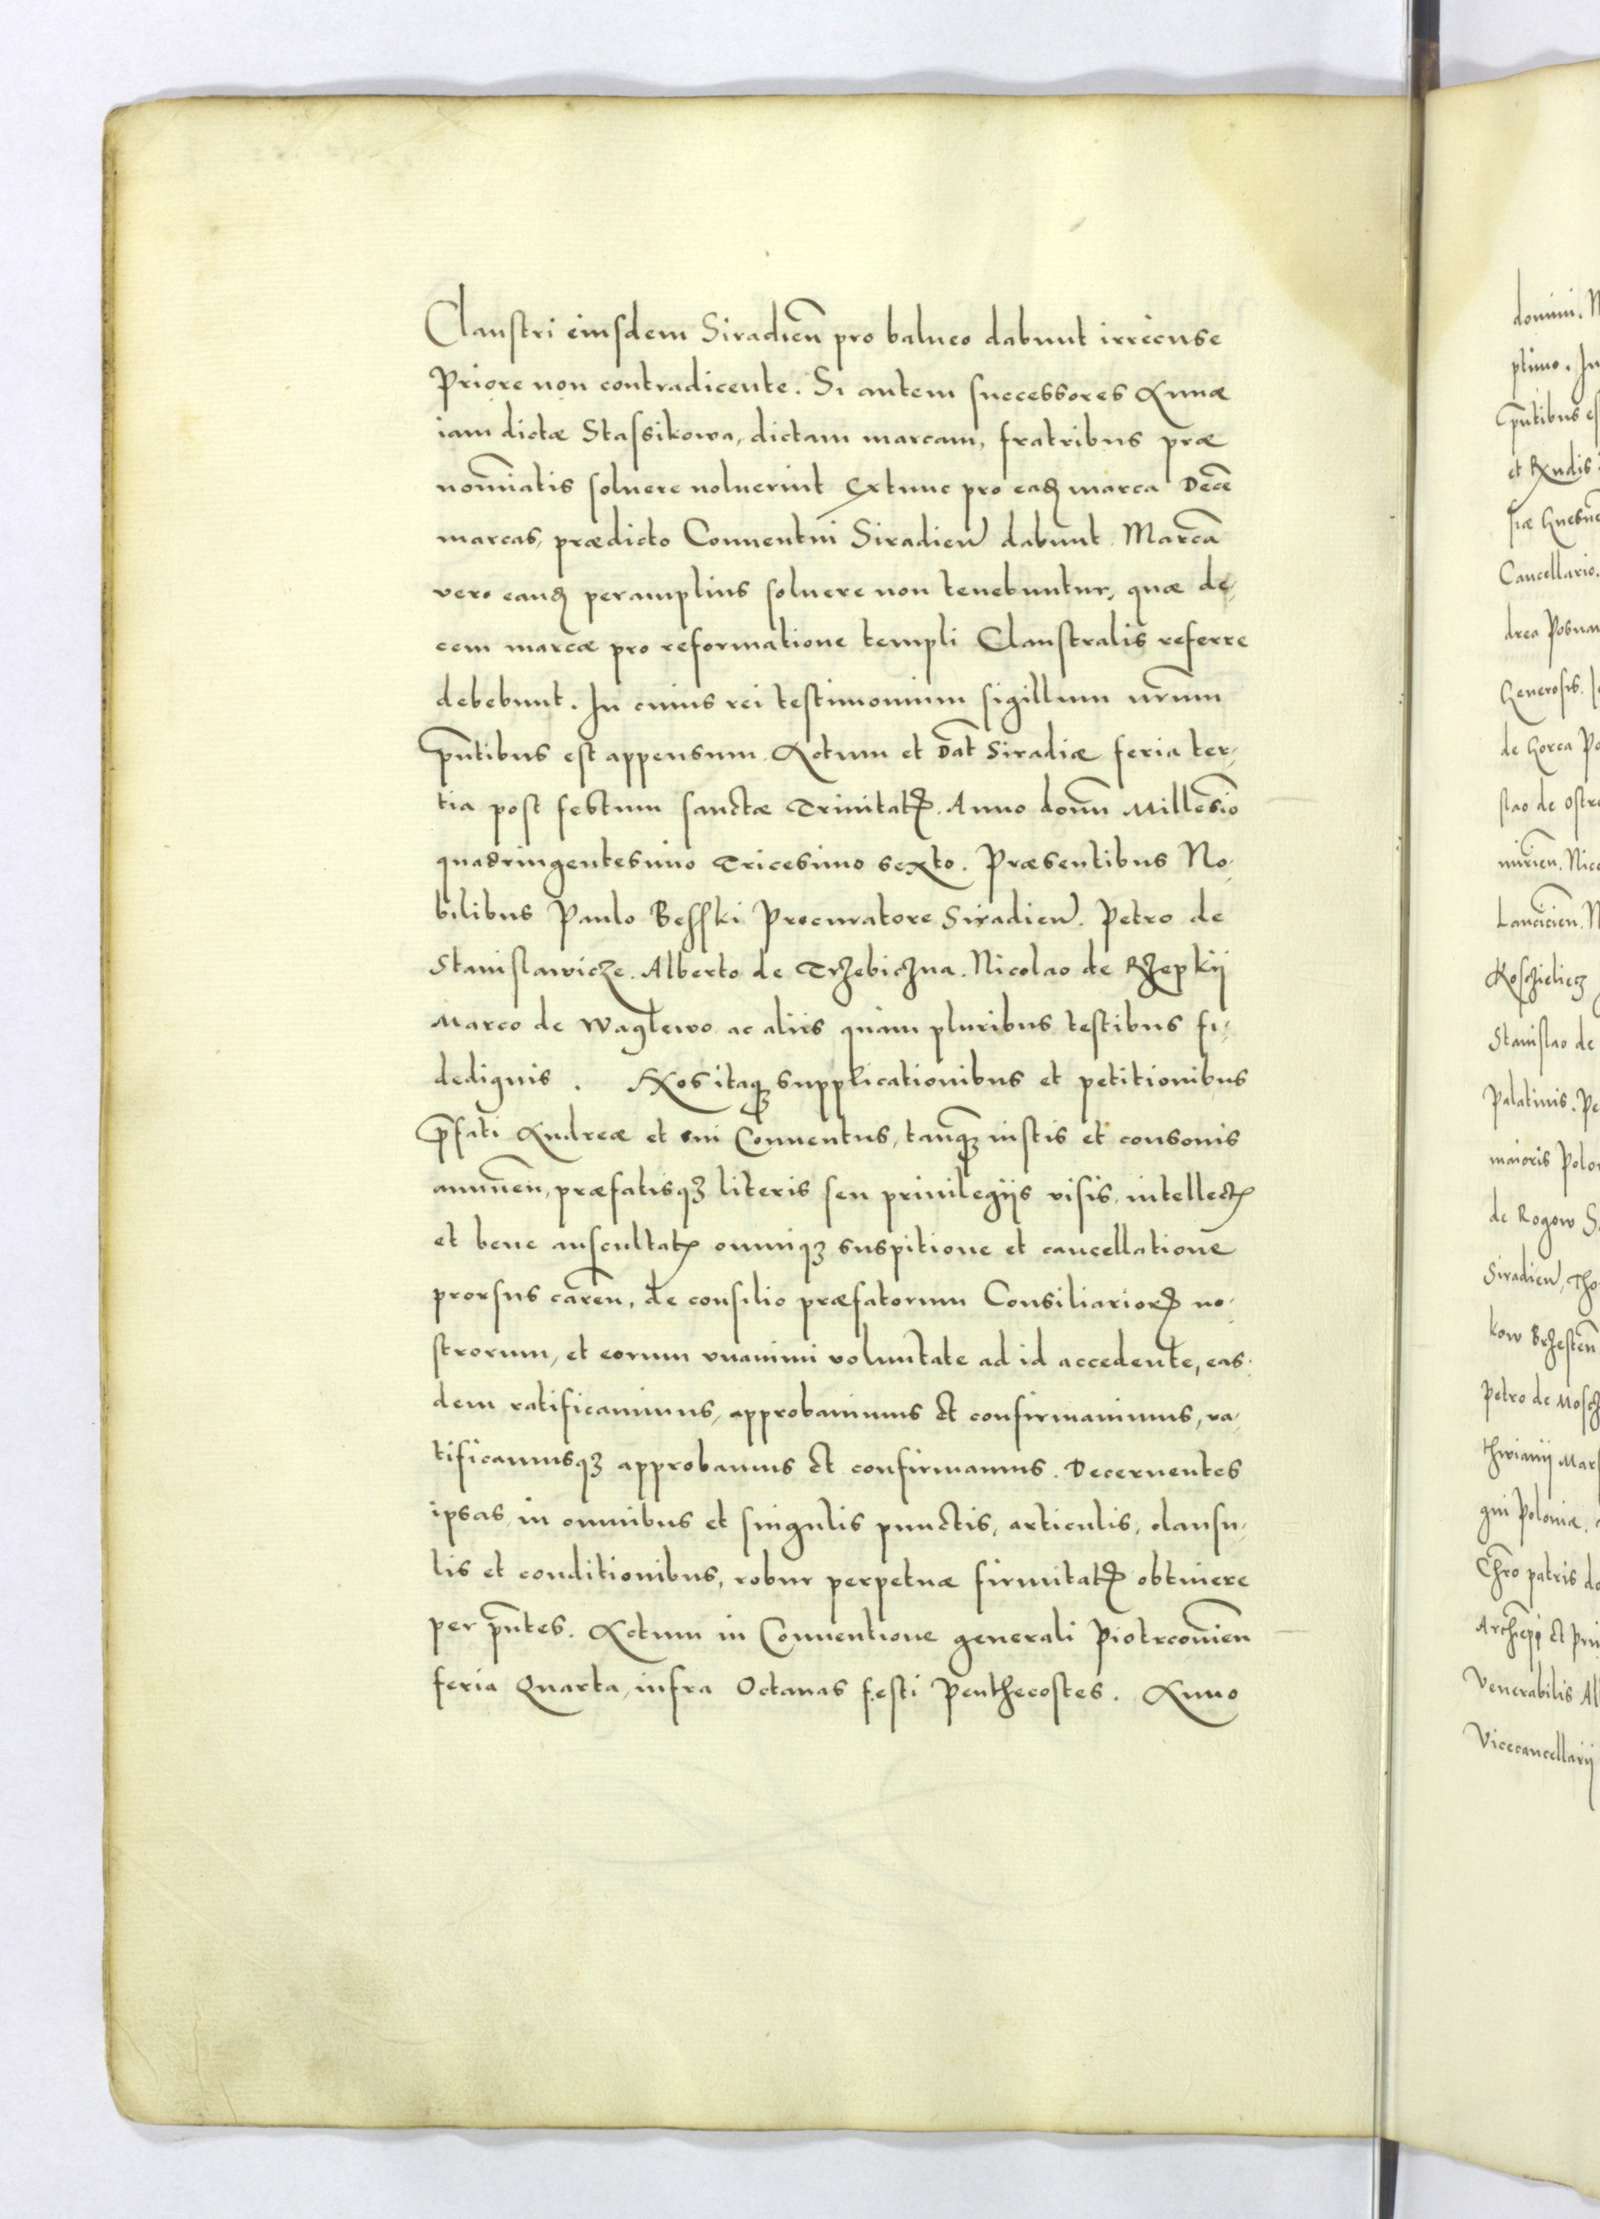 Claustri eiusdem Siradieñ pro balneo dabunt irrecuse
Priore non contradicente. Si autem successores Annæ
iam dictæ Stassikowa, dictam marcam, fratribus præ
nom̃iatis soluere noluerint Extunc pro eadẽ marca Decẽ
marcas, prædicto Conuentui Siradieñ dabunt. Marcã
vero eandẽ peramplius soluere non tenebuntur, quæ de-
cem marcæ pro reformatione templi Claustralis referre
debebunt. In cuius rei testimonium sigillum nr̃um
pñtibus est appensum. Actum et Dat̃ Siradiæ feria ter-
tia post festum sanctæ Trinitatꝭ. Anno domñ Millesĩo
quadringentesimo Tricesimo sexto. Præsentibus No-
bilibus Paulo Besski Procuratore Siradieñ. Petro de
Stanislawicze. Alberto de Trzebiczna. Nicolao de Rzepkij
Marco de Waglewo ac aliis quàm pluribus testibus fi-
dedignis. Nos itaqꝫ supplicationibus et petitionibus
p̃fati Andreæ et sui Conuentus, tanqꝫ iustis et consonis
annueñ, præfatisqꝫ literis seu priuilegijs visis, intellectꝭ
et bene auscultatꝭ omniqꝫ suspitione et cancellatione
prorsus careñ, de consilio præfatorum Consiliariorꝝ no-
strorum, et eorum vnanimi voluntate ad id accedente, eas-
dem ratificauimus, approbauimus et confirmauimus, ra-
tificamusqꝫ approbamus et confirmamus. Decernentes
ipsas, in omnibus et singulis punctis, articulis, clausu-
lis et conditionibus, robur perpetuæ firmitatꝭ obtinere
per pñtes. Actum in Conuentione generali Piotrcouieñ
feria Quarta, infra Octauas festi Penthecostes. Anno
domini.
ptimo. In
pñtibus es
et Rx̃ndis
siæ Gnesñe
Cancellario.
drea Posnan
Generosis.
de Gorca Po
slao de Ostro
mirieñ. Nico
Lancicieñ. N
Kosczieliecz
Stanislao de
Palatinis. Pe
maioris Polon
de Rogow S
Siradieñ, Tho
kow Brzesteñ
Petro de Mosch
thwianij Mars
gni Poloniæ.
Chr̃o patris do
Archiep̃i et Pri
Venerabilis Al
Vicecancellarij